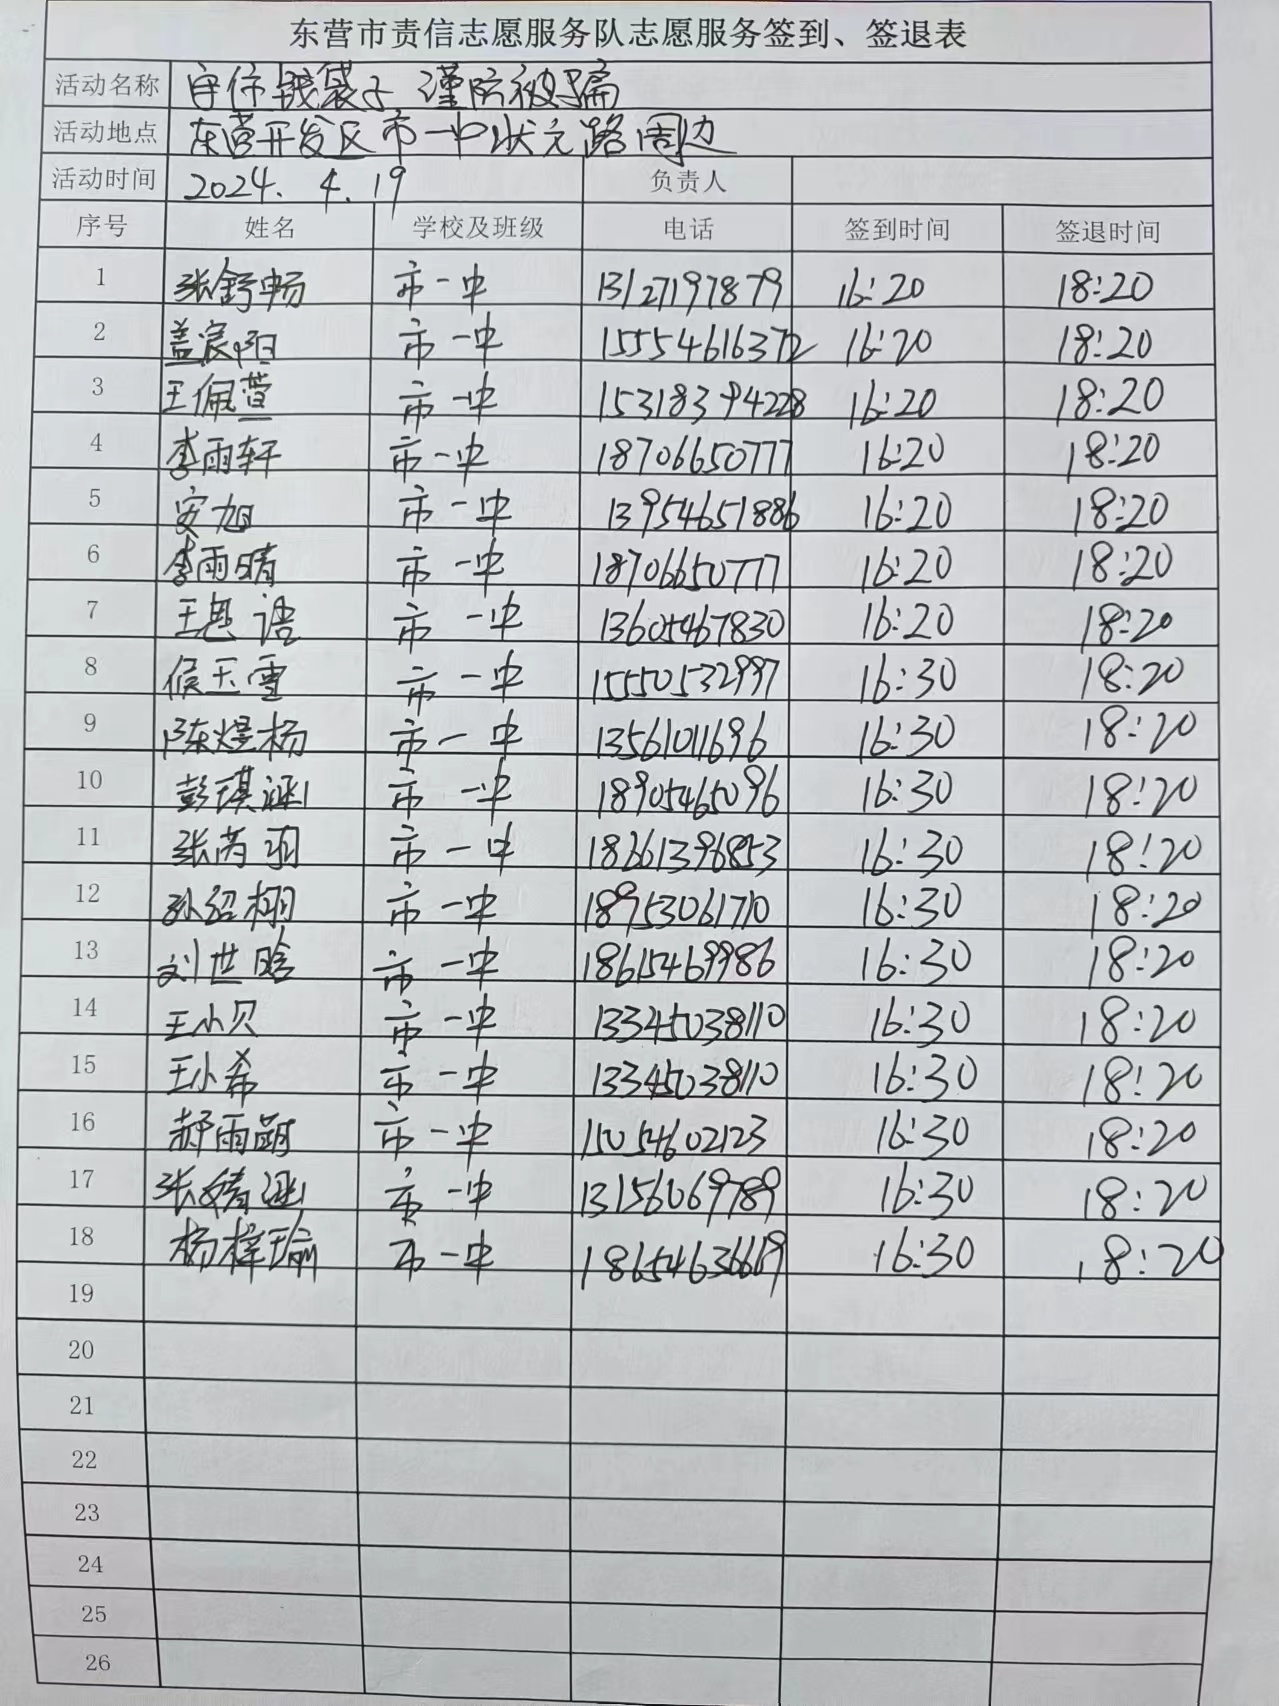 东营市责信志愿服务队志愿服务签到、签退表
活动名称 守住钱袋子 谨防被骗
活动地点 东营开发区市一中状元路周边
活动时间 2024.4.19 负责人
序号 姓名 学校及班级 电话 签到时间 签退时间
1 张舒畅 市一中 13127197879 16:20 18:20
2 盖宸阳 市一中 15554616372 16:20 18:20
3 王佩萱 市一中 15318394228 16:20 18:20
4 李雨轩 市一中 18706650777 16:20 18:20
5 安旭 市一中 13954651886 16:20 18:20
6 李雨晴 市一中 18706650777 16:20 18:20
7 王 语 市一中 13605467830 16:20 18:20
8 侯玉雪 市一中 15550532997 16:30 18:20
9 陈煜杨 市一中 13561011696 16:30 18:20
10 彭琪涵 市一中 18905465096 16:30 18:20
11 张芮羽 市一中 18661396853 16:30 18:20
12 孙绍栩 市一中 18953061710 16:30 18:20
13 刘世晗 市一中 18615469986 16:30 18:20
14 王小贝 市一中 13345038110 16:30 18:20
15 王小希 市一中 13345038110 16:30 18:20
16 郝雨萌 市一中 15054602123 16:30 18:20
17 张婧涵 市一中 13156069789 16:30 18:20
18 杨梓瑜 市一中 18654636669 16:30 18:20
19
20
21
22
23
24
25
26